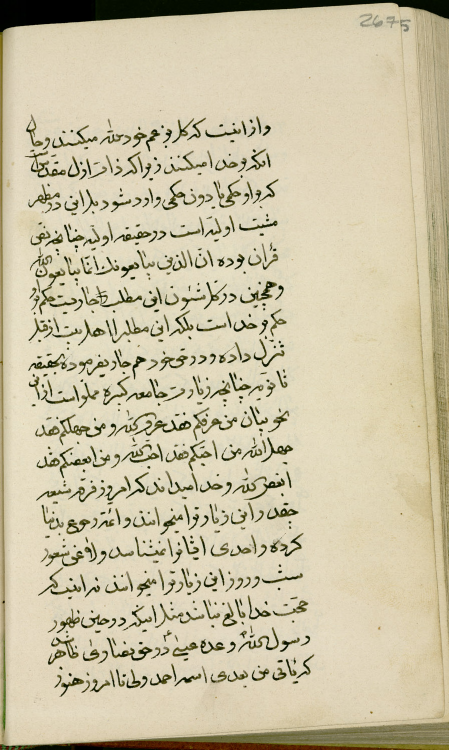 2675
و از اینست که کل بزعم خود لله میکنند و حال
آنکه بر خدا میکنند زیرا که ذات ازل مقدس است
که بر او حکمی یا دون حکمی وارد شود بل این در مظهر
مثبت اولیه است در حقیقه اولیه چنانچه نص
قرآن بوده ان الذین یبایعونک انما یبایعون الله
و همچنین در کل شئون این مطلب را جاریست حکم بر او
حکم بر خدا است بلکه این مطلب را اهل بیت از قبل
تنزل داده و در حق خود هم جاری فرموده بحقیقه
ثانویه چنانچه زیارت جامعه کبیره مملو است از این
نحو بیان من عرفکم فقد عرف الله و من جهلکم فقد
جهل الله من احبکم فقد احب الله و من ابغضکم فقد
ابغض الله و خدا میداند که امروز فرقه شیعه
چقدر این زیارت را میخوانند و ائمه رجوع بدنیا
کرده و احدی ایشانرا نمیشناسد و لا عن شعور
شب و روز این زیارت را میخوانند نه اینست که
حجت خدا بالغ نباشد مثل اینکه در حین ظهور
رسول الله وعده عیسی در حق نصاری ظاهر شد
که یاتی من بعدی اسمه احمد ولی تا امروز هنوز